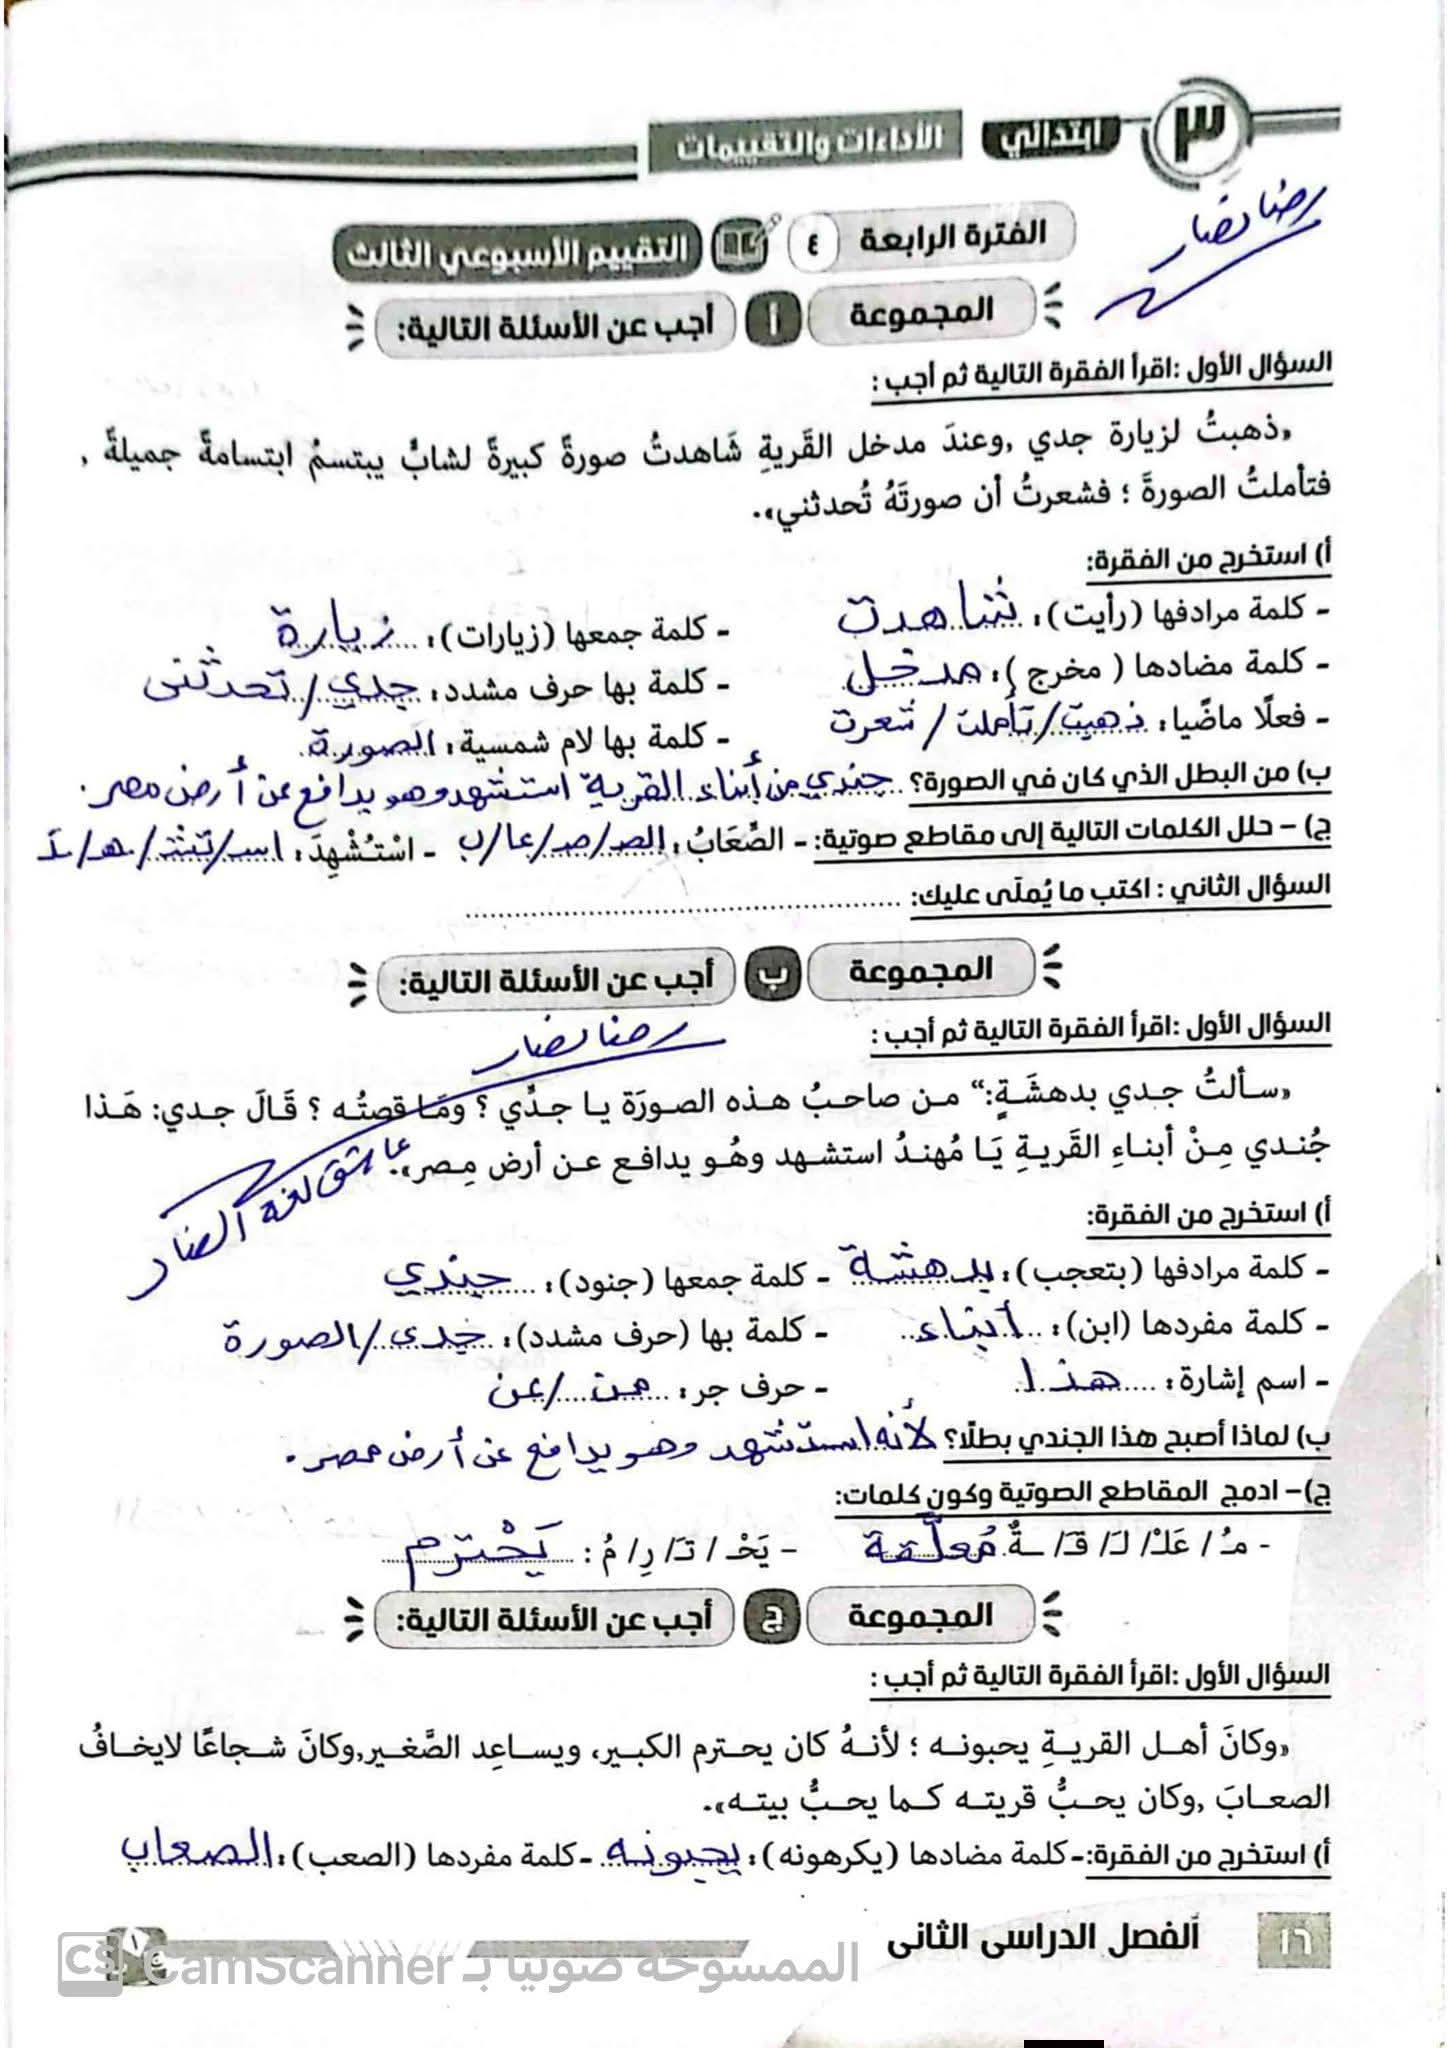 ٣ ابتدائي الأداءات والتقييمات
رضا نصار
الفترة الرابعة ٤ التقييم الأسبوعي الثالث
المجموعة أ أجب عن الأسئلة التالية:
السؤال الأول :اقرأ الفقرة التالية ثم أجب :
«ذهبتُ لزيارة جدي ,وعندَ مدخل القَريةِ شَاهدتُ صورةً كبيرةً لشابٍّ يبتسمُ ابتسامةً جميلةً ,
فتأملتُ الصورةَ ؛ فشعرتُ أن صورتَهُ تُحدثني».
أ) استخرج من الفقرة:
- كلمة مرادفها (رأيت): شاهدت - كلمة جمعها (زيارات): زيارة
- كلمة مضادها ( مخرج ): مدخل - كلمة بها حرف مشدد: جدي / تحدثنى
- فعلًا ماضًيا: ذهبت / تأملت / شعرت - كلمة بها لام شمسية: الصورة
ب) من البطل الذي كان في الصورة؟ جندي من أبناء القرية استشهد وهو يدافع عن أرض مصر.
ج) – حلل الكلمات التالية إلى مقاطع صوتية: - الصِّعَابُ: الصـ/صـ/عا/ب - اسْتُشْهِدَ: اسـ/تشـ/هـ/ـدَ
السؤال الثاني : اكتب ما يُملَى عليك:
المجموعة ب أجب عن الأسئلة التالية:
السؤال الأول :اقرأ الفقرة التالية ثم أجب :
رضا نصار
«سألتُ جدي بدهشَةٍ:“ من صاحبُ هذه الصورَة يا جدِّي ؟ ومَا قصتُه ؟ قَالَ جدي: هَذا
جُندي مِنْ أبناءِ القَريةِ يَا مُهندُ استشهد وهُو يدافع عن أرض مِصر».
عاشق لغة الضاد
أ) استخرج من الفقرة:
- كلمة مرادفها (بتعجب): بدهشة - كلمة جمعها (جنود): جندي
- كلمة مفردها (ابن): أبناء - كلمة بها (حرف مشدد): جدي/الصورة
- اسم إشارة: هذا - حرف جر: من / عن
ب) لماذا أصبح هذا الجندي بطلًا؟ لأنه استشهد وهو يدافع عن أرض مصر.
ج)– ادمج المقاطع الصوتية وكون كلمات:
- مُـ / عَلْـ/ لَـ/ قَـ/ ـةٌ مُعلَّقة - يَحْـ / تَـ/ رِ/ مُ : يَحْترم
المجموعة ج أجب عن الأسئلة التالية:
السؤال الأول :اقرأ الفقرة التالية ثم أجب :
«وكانَ أهل القريةِ يحبونه ؛ لأنهُ كان يحترم الكبير، ويساعِد الصَّغير,وكانَ شجاعًا لايخافُ
الصعابَ ,وكان يحبُّ قريته كما يحبُّ بيته».
أ) استخرج من الفقرة:-كلمة مضادها (يكرهونه): يحبونه -كلمة مفردها (الصعب): الصعاب
١٦ الفصل الدراسى الثانى
الممسوحة ضوئيا بـ CamScanner
CS